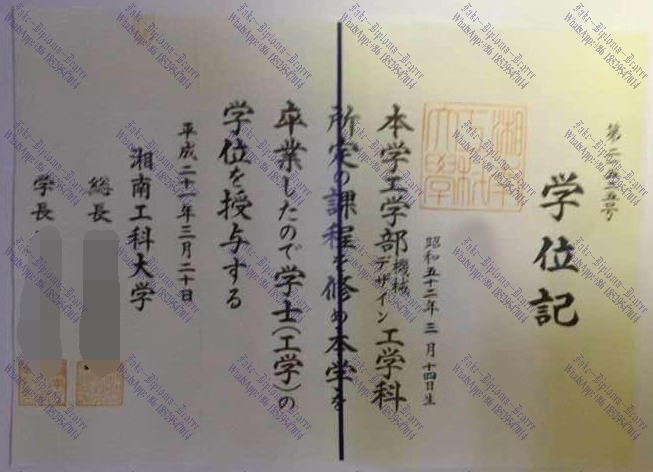 学位記
昭和五十二年三月十四日生
本学工学部機械デザイン工学科
所定の課程を修め本学を
卒業したので学士(工学)の
学位を授与する
平成二十一年三月二十日
湘南工科大学
総長
学長
Fake-Diploma-Buyer